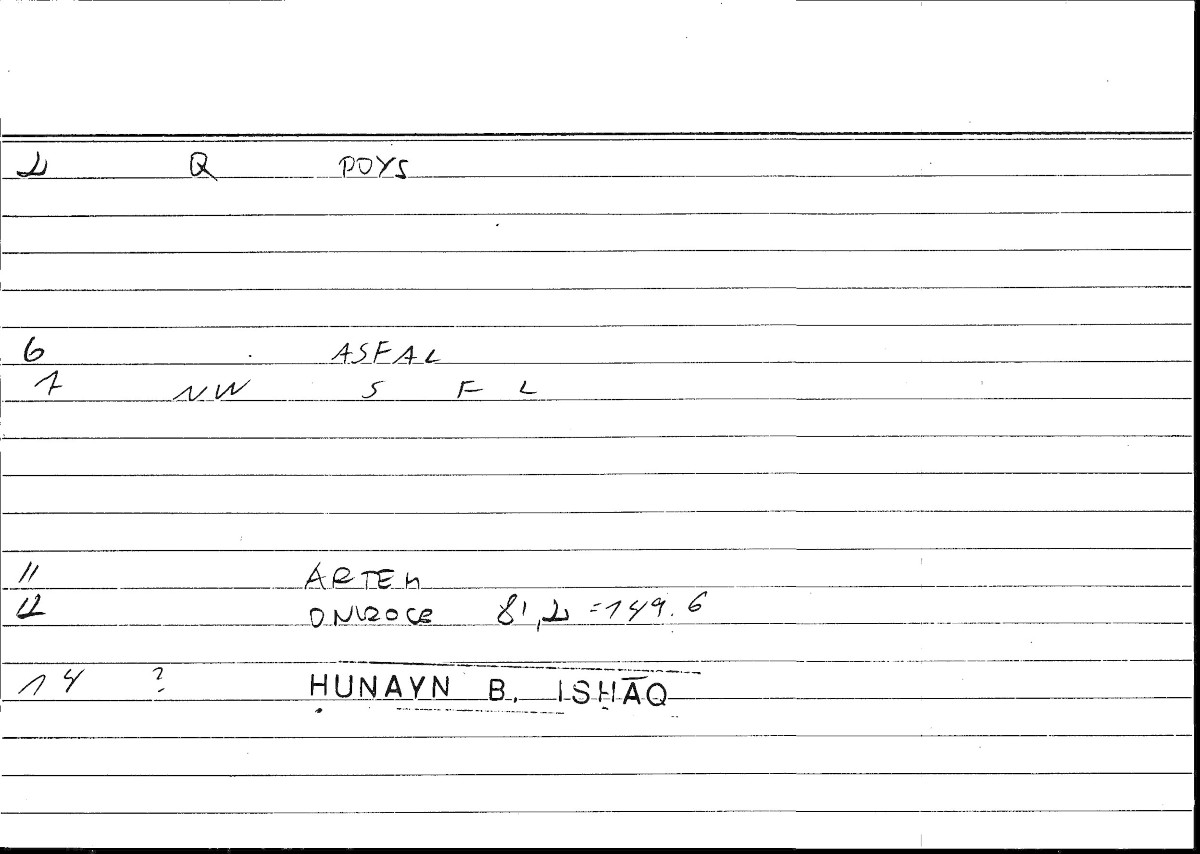 2 Q POYS
6 ASFAL
7 NW S F L
11 ARTEM
12 ONIROCR 81,2 =149.6
14 ? ḤUNAYN B. ISḤĀQ